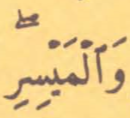 وَٱلْمَيْسِرِۖ